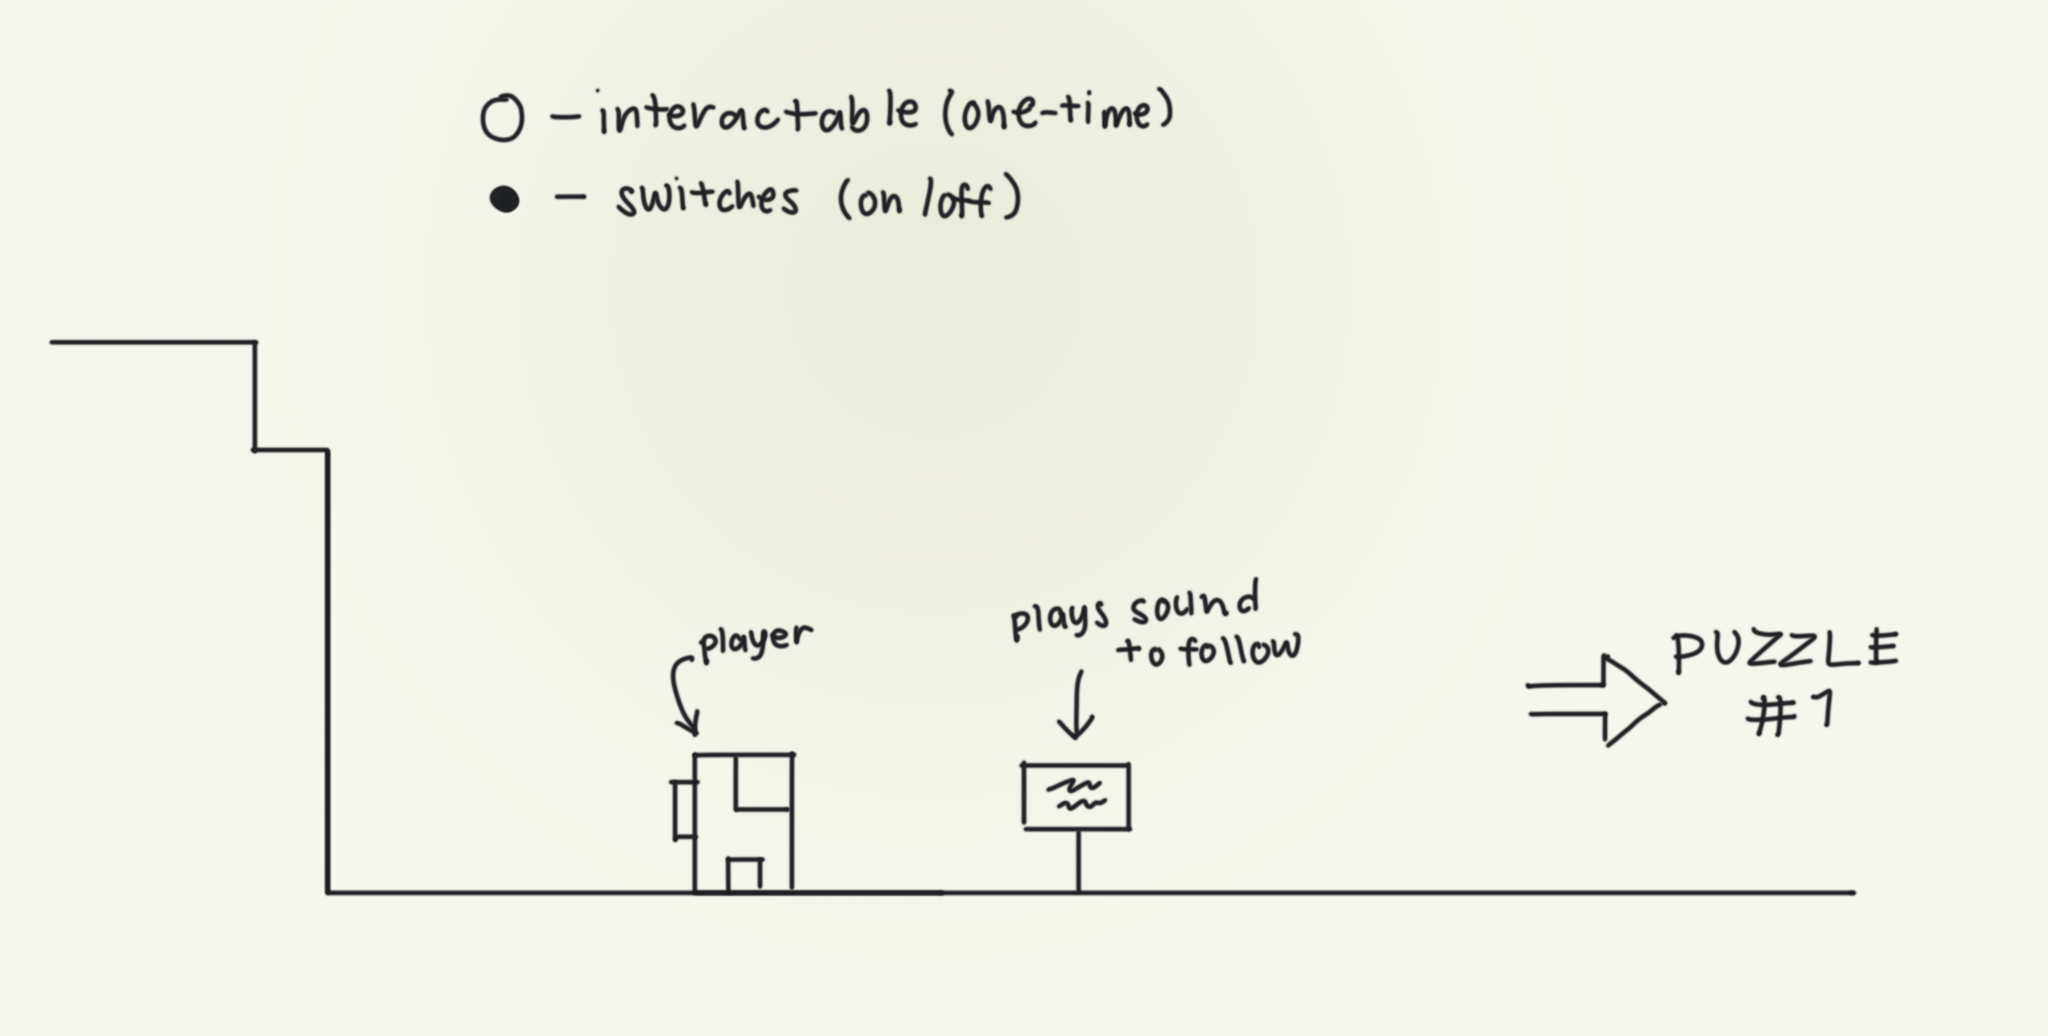 O - interactable (one-time)
● - switches (on/off)
player
plays sound
to follow
PUZZLE
#1